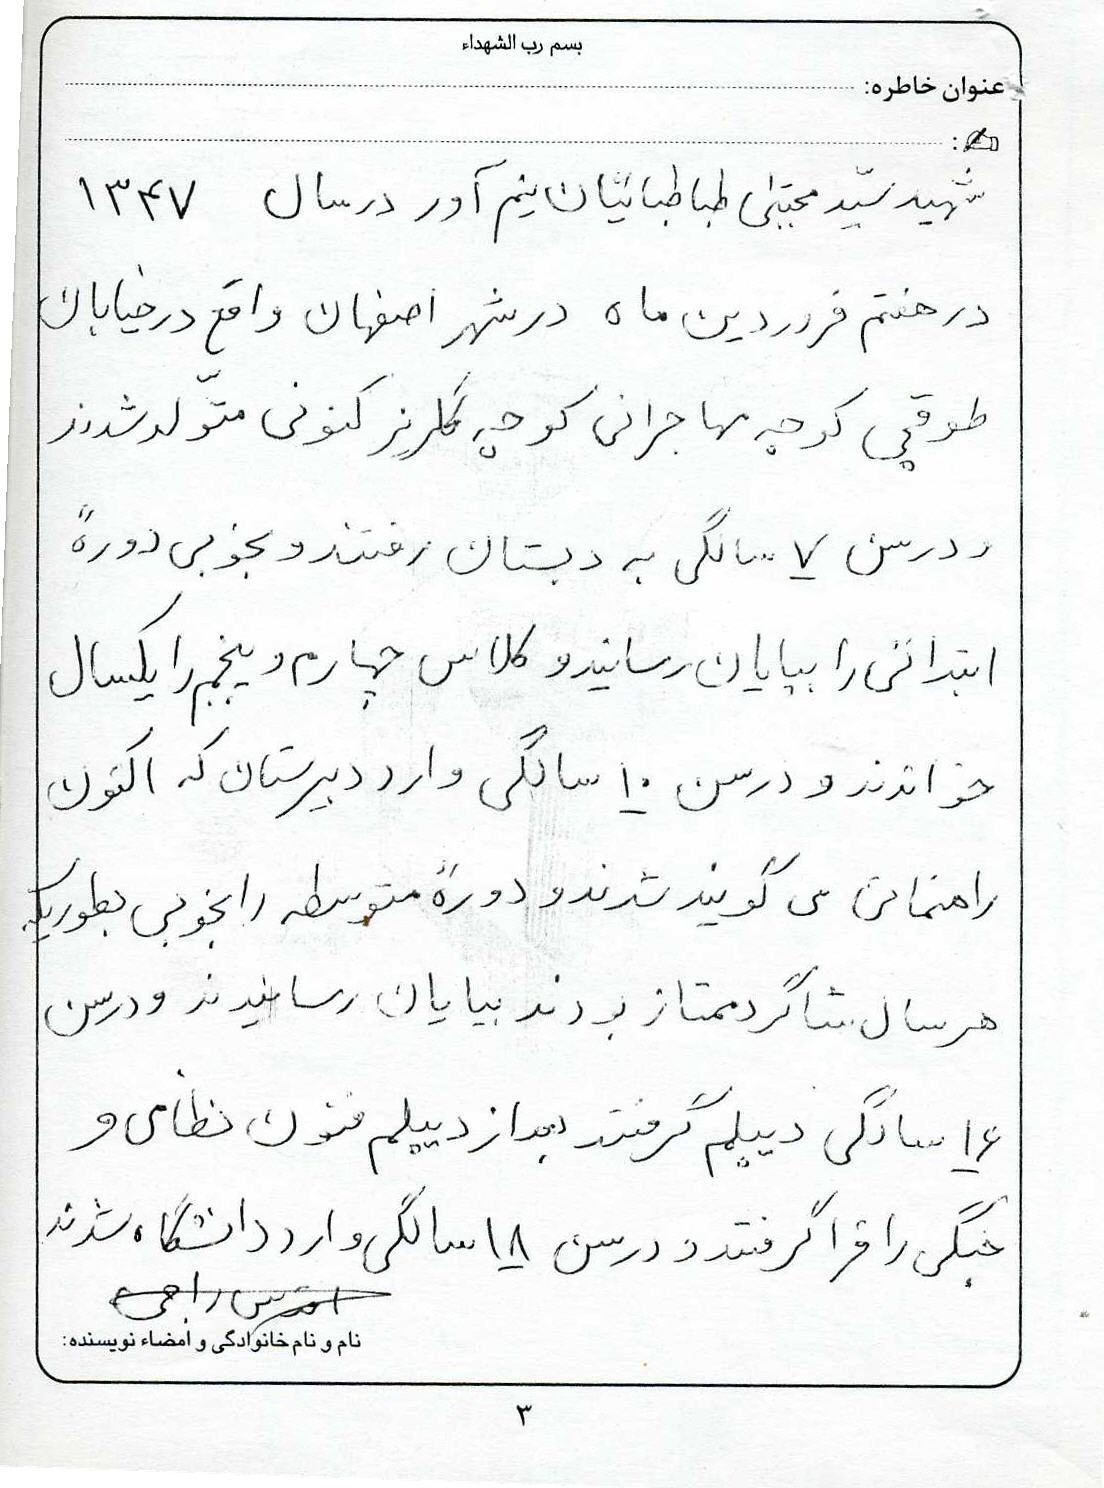 بسم رب الشهداء
عنوان خاطره:
:
شهید سیّد مجتبی طباطبائیان نیم آور در سال ۱۳۴۷
در هفتم فروردین ماه در شهر اصفهان واقع در خیابان
طوقچی کوچه مهاجرانی کوچه گلریز کنونی متّولد شدند
و در سن ۷ سالگی به دبستان رفتند و بخوبی دورهٔ
ابتدائی را بپایان رسانید و کلاس چهارم و پنجم را یکسال
خواندند و در سن ۱۰ سالگی وارد دبیرستان که اکنون
راهنمائی می گویند شدند و دورهٔ متوسطه را بخوبی بطوریکه
هر سال شاگرد ممتاز بودند بپایان رسانیدند و در سن
۱۶ سالگی دیپلم گرفتند بعد از دیپلم فنون نظامی و
جنگی را فرا گرفتند و در سن ۱۸ سالگی وارد دانشگاه شدند
نام و نام خانوادگی و امضاء نویسنده:
۳